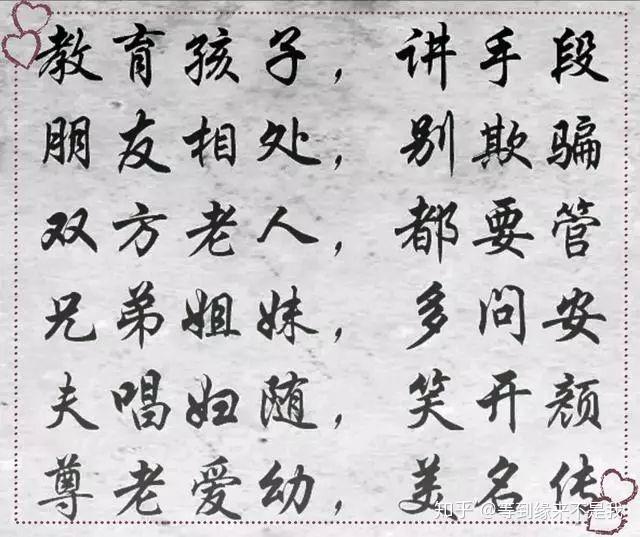 教育孩子，讲手段
朋友相处，别欺骗
双方老人，都要管
兄弟姐妹，多问安
夫唱妇随，笑开颜
尊老爱幼，美名传
知乎 @等到缘来不是我